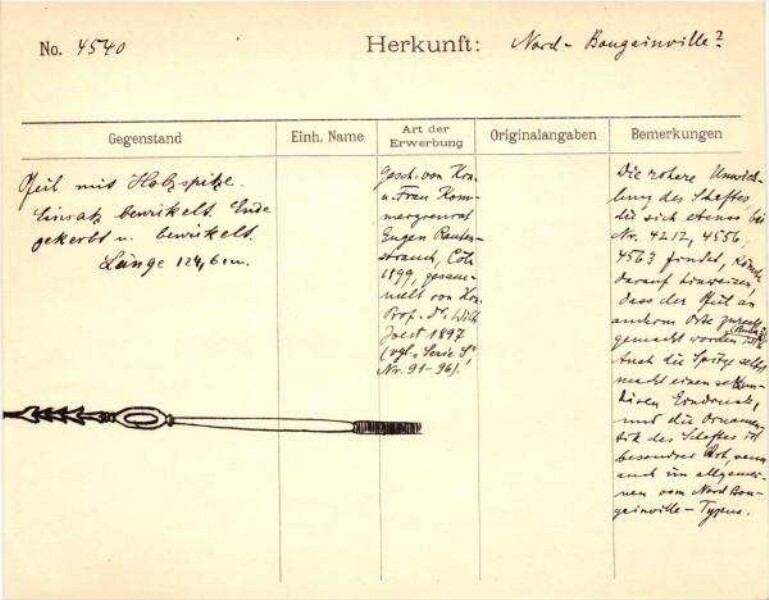 No. 4540 Herkunft: Nord-Bougainville?
Gegenstand Einh. Name Art der Erwerbung Originalangaben Bemerkungen
Pfeil mit Holzspitze.
Einsatz bewickelt. Ende
gekerbt u. bewickelt.
Länge 124,6 cm.
Gesch. von Hrn.
u. Frau Kom-
merzienrat
Eugen Rauten-
strauch, Cöln
1899, gesam-
melt von Hrn.
Prof. Dr. Wilh.
Joest 1897
(vgl. "Serie S"
Nr. 91-96).
Die rohere Umwick-
lung des Schaftes,
die sich ebenso bei
Nr. 4212, 4556,
4563 findet, könnte
darauf hinweisen,
dass der Pfeil an
anderm Orte zurecht
gemacht worden ist
Auch die Spitze selbst
macht einen
Eindruck,
und die Ornamen-
tik des Schaftes ist
besondrer Art, wenn
auch im allgemei-
nen vom Nord Bou-
gainville-Typus.